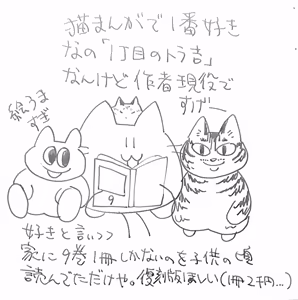 猫まんがで1番好き
なの「1丁目のトラ吉」
なんけど作者現役で
すげー
絵うま
すぎ
9
好きと言いつつ
家に9巻1冊しかないのを子供の頃
読んでただけや。復刻版ほしい(1冊2千円…)